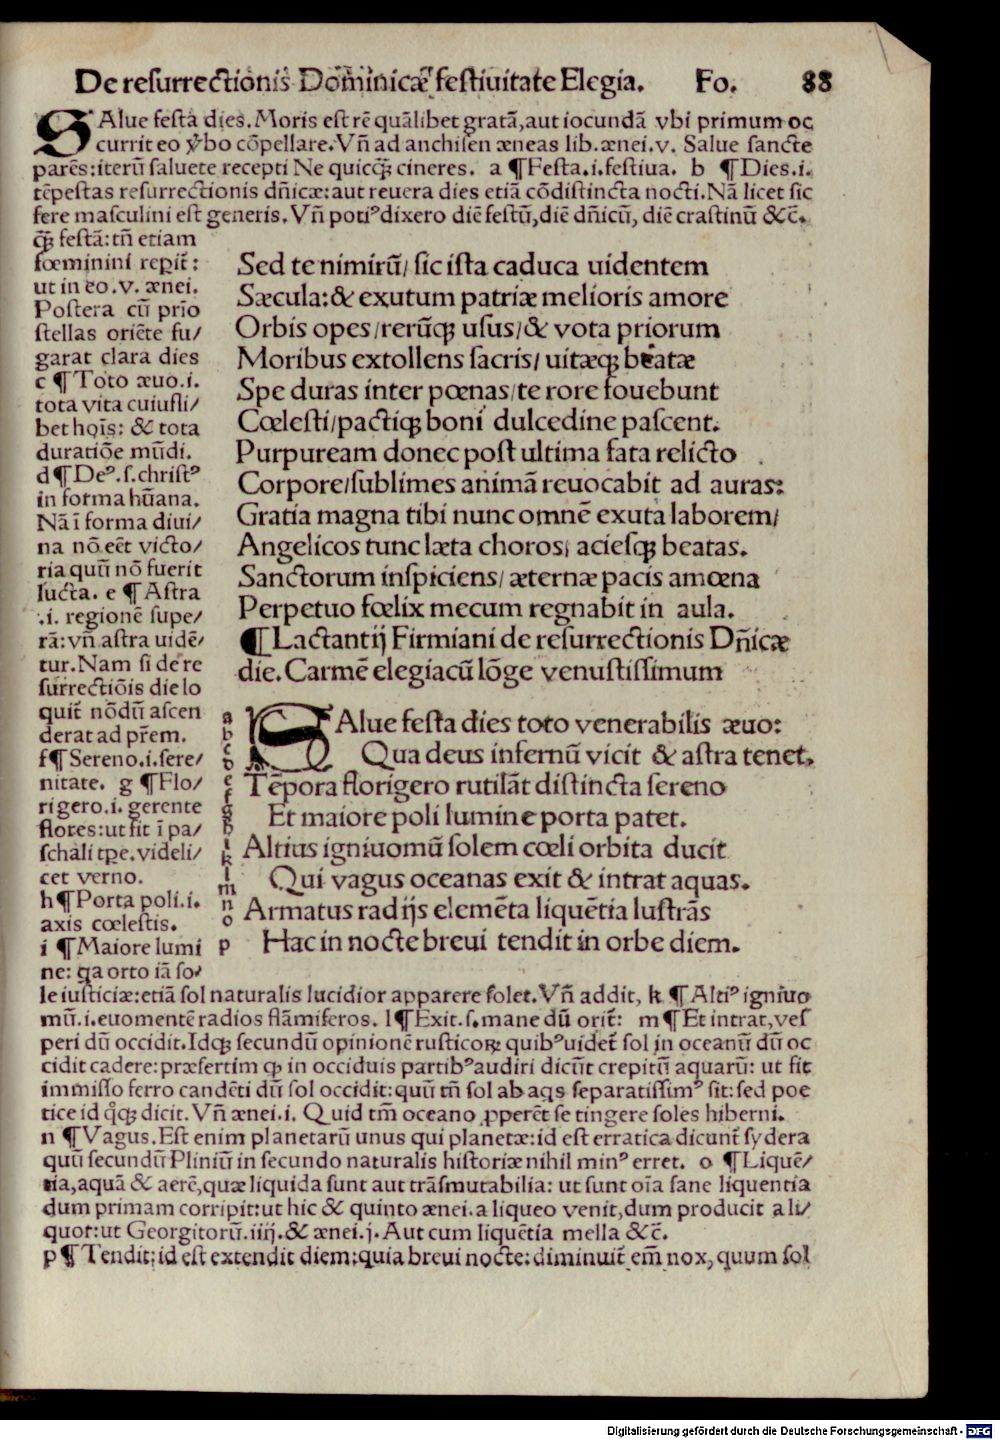 De resurrectionis Dominicæ festiuitate Elegia. Fo. 88
SAlue festa dies. Moris est rē quālibet gratā, aut iocundā vbi primum oc
currit eo v̄bo cōpellare. Vn̄ ad anchisen æneas lib. ænei. v. Salue sancte
parēs: iterū saluete recepti Ne quicq̄ȝ cineres. a ¶Festa. i. festiua. b ¶Dies. i.
tēpestas resurrectionis dn̄icæ: aut reuera dies etiā cōdistincta nocti. Nā licet sic
fere masculini est generis. Vn̄ potiꝰ dixero diē festū, diē dn̄icū, diē crastinū &c̄.
q̄ȝ festā: tn̄ etiam
fœminini repit̄:
ut in eo. v. ænei.
Postera cū prīo
stellas oriēte fu/
garat clara dies
c ¶Toto æuo. i.
tota vita cuiusli/
bet hoīs: & tota
duratiōe mūdi.
d¶Deꝰ. s. christꝰ
in forma hūana.
Nā ī forma diui/
na nō eēt victo/
ria quū nō fuerit
lucta. e ¶Astra
.i. regionē supe/
rā: vn̄ astra uidē/
tur. Nam si de re
surrectiōis die lo
quit̄ nōdū ascen
derat ad pr̄em.
f¶Sereno. i. sere/
nitate. g ¶Flo/
rigero. i. gerente
flores: ut fit ī pa/
schali tꝑe. videli/
cet verno.
h¶Porta poli. i.
axis cœlestis.
i ¶Maiore lumi
ne: qa orto iā so/
Sed te nimirū/ sic ista caduca uidentem
Sæcula: & exutum patriæ melioris amore
Orbis opes/ rerūqȝ usus/ & vota priorum
Moribus extollens sacris/ uitæqȝ beatæ
Spe duras inter pœnas/ te rore fouebunt
Cœlesti/ pactiqȝ boni dulcedine pascent.
Purpuream donec post ultima fata relicto
Corpore/ sublimes animā reuocabit ad auras:
Gratia magna tibi nunc omnē exuta laborem/
Angelicos tunc læta choros, aciesqȝ beatas.
Sanctorum inspiciens/ æternæ pacis amœna
Perpetuo fœlix mecum regnabit in aula.
¶Lactantij Firmiani de resurrectionis Dn̄icæ
die. Carmē elegiacū lōge venustissimum
a SAlue festa dies toto venerabilis æuo:
b c d Qua deus infernū vicit & astra tenet.
e f Tēpora florigero rutilāt distincta sereno
g h Et maiore poli lumine porta patet.
i k Altius igniuomū solem cœli orbita ducit
l m Qui vagus oceanas exit & intrat aquas.
n o Armatus radijs elemēta liquētia lustrās
p Hac in nocte breui tendit in orbe diem.
le iusticiæ: etiā sol naturalis lucidior apparere solet. Vn̄ addit, k ¶Altiꝰ igniuo
mū. i. euomentē radios flāmiferos. l¶Exit. s. mane dū orit̄: m ¶Et intrat, ves
peri dū occidit. Idqȝ secundū opinionē rusticoꝝ quibꝰ uidet̄ sol in oceanū dū oc
cidit cadere: præsertim q̄ in occiduis partibꝰ audiri dicūt crepitū aquarū: ut fit
immisso ferro candēti dū sol occidit: quū tn̄ sol ab aqs separatissimꝰ sit: sed poe
tice id q̄qȝ dicit. Vn̄ ænei. i. Quid tm̄ oceano ꝓperēt se tingere soles hiberni.
n ¶Vagus. Est enim planetarū unus qui planetæ: id est erratica dicunt̄ sydera
quū secundū Pliniū in secundo naturalis historiæ nihil minꝰ erret. o ¶Liquē/
tia, aquā & aerē, quæ liquida sunt aut trāsmutabilia: ut sunt oīa sane liquentia
dum primam corripit: ut hic & quinto ænei. a liqueo venit, dum producit a li/
quor: ut Georgitorū. iiij. & ænei. j. Aut cum liquētia mella &c̄.
p¶Tendit: id est extendit diem: quia breui nocte: diminuit̄ em̄ nox, quum sol
Digitalisierung gefördert durch die Deutsche Forschungsgemeinschaft - DFG